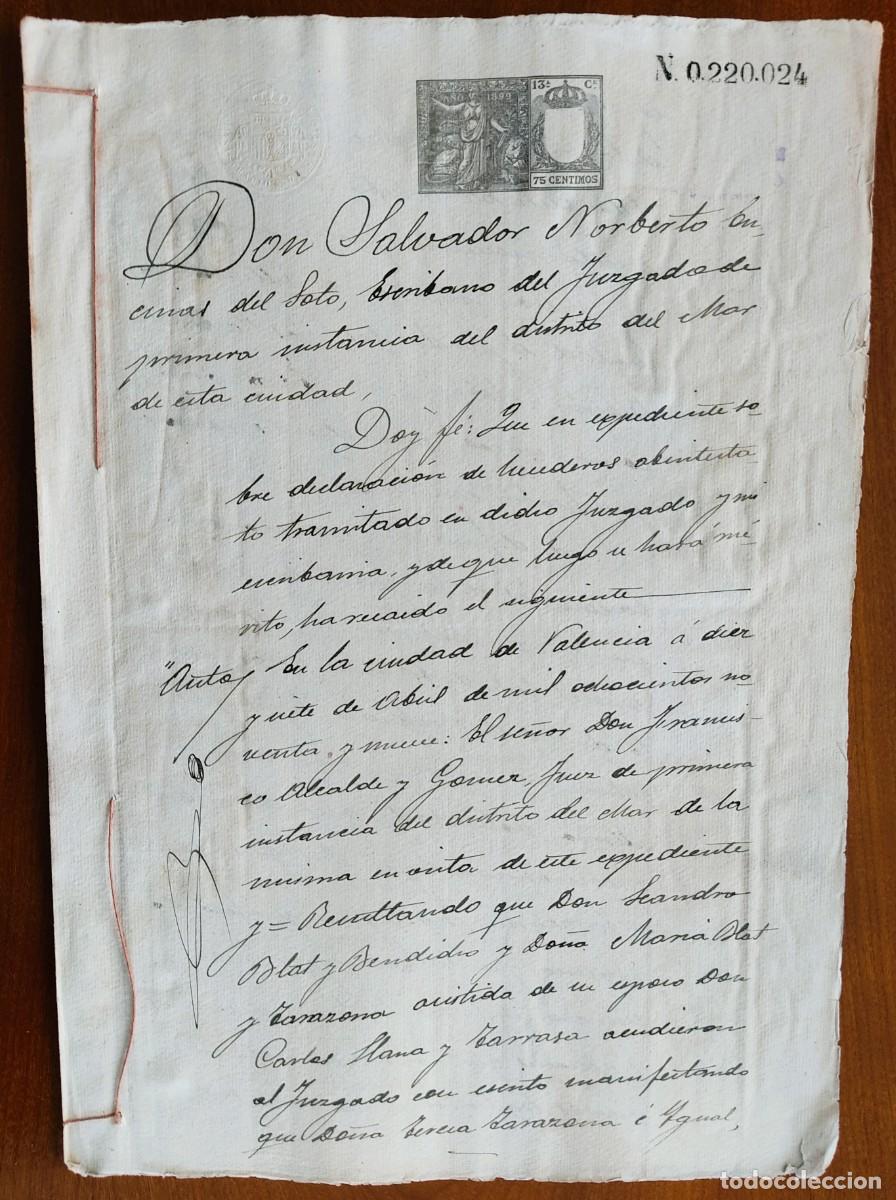 N. 0.220.024
AÑO 1899
13ª Cª
75 CENTIMOS
Don Salvador Norberto En-
cinas del Soto, Escribano del Juzgado de
primera instancia del distrito del Mar
de esta ciudad,
Doy fé: Que en expediente so-
bre declaración de herederos abintesta-
to tramitado en dicho Juzgado y mi
escribania, y de que luego se hará mé-
rito, ha recaido el siguiente
"Auto/ En la ciudad de Valencia á diez
y siete de Abril de mil ochocientos no-
venta y nueve: El señor Don Francis-
co Alcalde y Gomez, Juez de primera
instancia del distrito del Mar de la
misma en vista de este expediente
y= Resultando que Don Leandro
Blat y Bendicho y Doña Maria Blat
y Tarazona asistida de su esposo Don
Carlos Llana y Tarrasa acudieron
al Juzgado con escrito manifestando
que Doña Teresa Tarazona é Igual,
todocoleccion